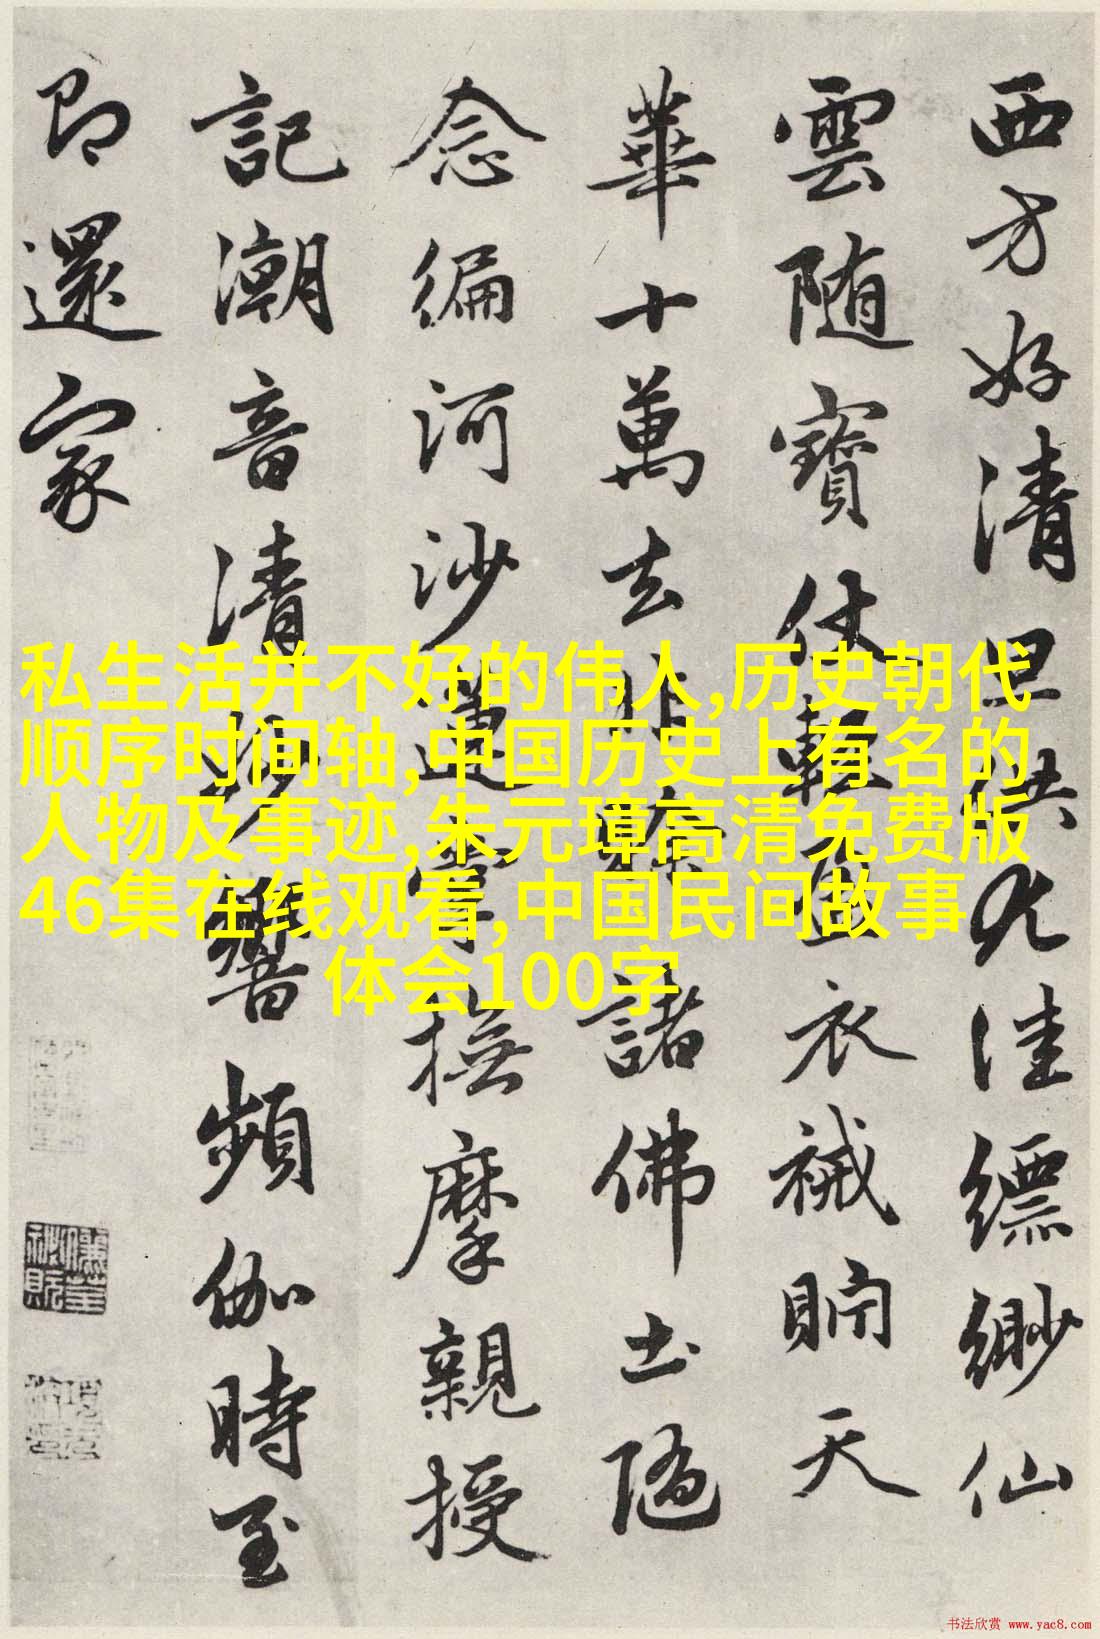 西方好清旦供尤佳縹緲仙
雲随寶仗輕盈衣裓貯天
華十萬去非賒諸佛土隨
念編河沙蓮掌撫摩親授
記潮音清妙響頻伽時至
即還家
私生活并不好的伟人,历史朝代
顺序时间轴,中国历史上有名的
人物及事迹,朱元璋高清免费版
46集在线观看,中国民间故事
体会100字
书法欣赏 www.yac8.com